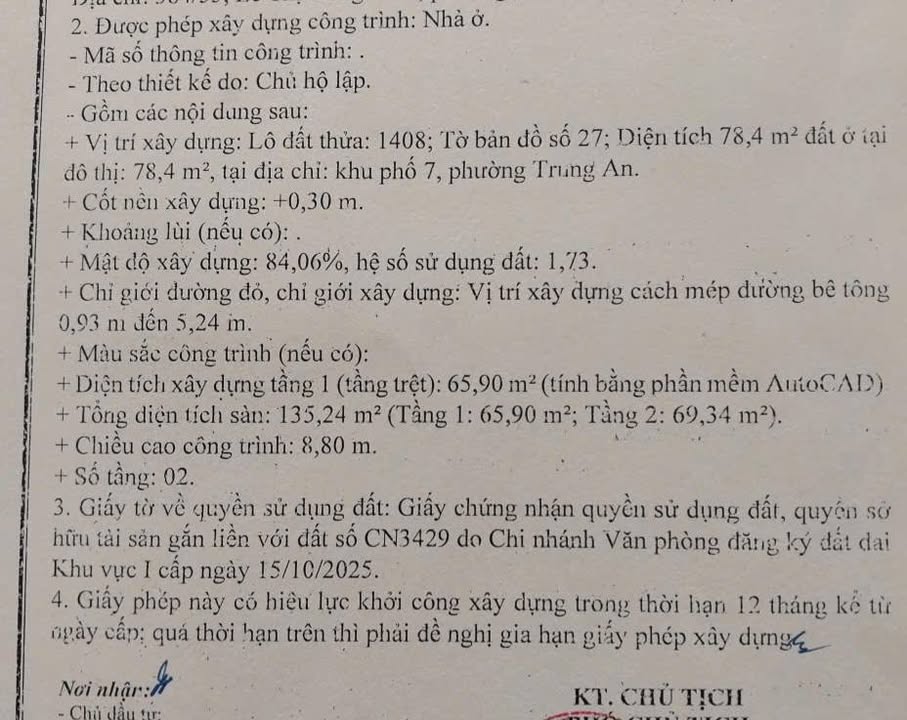 2. Được phép xây dựng công trình: Nhà ở.
- Mã số thông tin công trình: .
- Theo thiết kế do: Chủ hộ lập.
- Gồm các nội dung sau:
+ Vị trí xây dựng: Lô đất thửa: 1408; Tờ bản đồ số 27; Diện tích 78,4 m² đất ở tại
đô thị: 78,4 m², tại địa chỉ: khu phố 7, phường Trung An.
+ Cốt nền xây dựng: +0,30 m.
+ Khoảng lùi (nếu có): .
+ Mật độ xây dựng: 84,06%, hệ số sử dụng đất: 1,73.
+ Chỉ giới đường đỏ, chỉ giới xây dựng: Vị trí xây dựng cách mép đường bê tông
0,93 m đến 5,24 m.
+ Màu sắc công trình (nếu có):
+ Diện tích xây dựng tầng 1 (tầng trệt): 65,90 m² (tính bằng phần mềm AutoCAD)
+ Tổng diện tích sàn: 135,24 m² (Tầng 1: 65,90 m²; Tầng 2: 69,34 m²).
+ Chiều cao công trình: 8,80 m.
+ Số tầng: 02.
3. Giấy tờ về quyền sử dụng đất: Giấy chứng nhận quyền sử dụng đất, quyền sở
hữu tài sản gắn liền với đất số CN3429 do Chi nhánh Văn phòng đăng ký đất đai
Khu vực I cấp ngày 15/10/2025.
4. Giấy phép này có hiệu lực khởi công xây dựng trong thời hạn 12 tháng kể từ
ngày cấp; quá thời hạn trên thì phải đề nghị gia hạn giấy phép xây dựng
Nơi nhận:
KT. CHỦ TỊCH
- Chủ đầu tư;
PHÓ CHỦ TỊCH